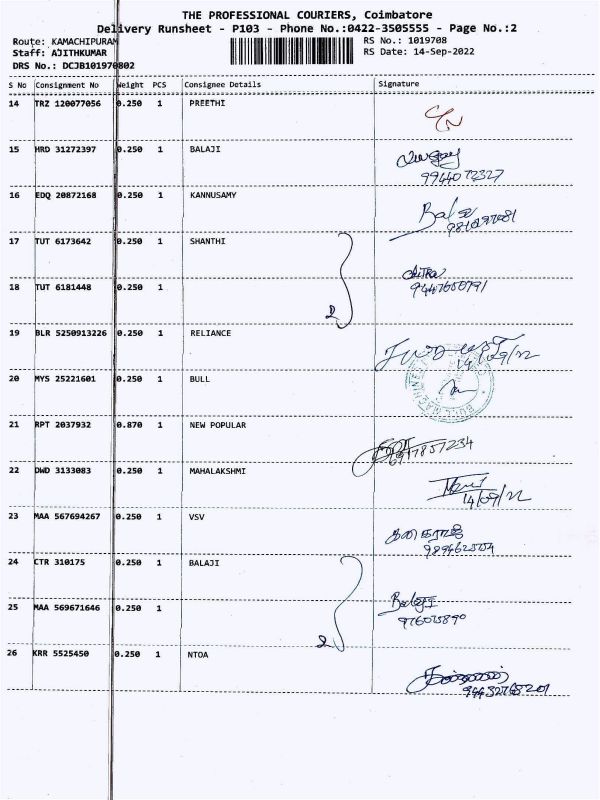 THE PROFESSIONAL COURIERS, Coimbatore
Delivery Runsheet - P103 - Phone No.:0422-3505555 - Page No.:2
Route: KAMACHIPURAM
RS No.: 1019708
Staff: AJITHKUMAR
RS Date: 14-Sep-2022
DRS No.: DCJB101970802
S No Consignment No Weight PCS Consignee Details Signature
14 TRZ 120077056 0.250 1 PREETHI
15 HRD 31272397 0.250 1 BALAJI
9944072327
16 EDQ 20872168 0.250 1 KANNUSAMY
17 TUT 6173642 0.250 1 SHANTHI
18 TUT 6181448 0.250 1
2
19 BLR 5250913226 0.250 1 RELIANCE
14/09/22
20 MYS 25221601 0.250 1 BULL
21 RPT 2037932 0.870 1 NEW POPULAR
22 DWD 3133083 0.250 1 MAHALAKSHMI
14/09/22
23 MAA 567694267 0.250 1 VSV
24 CTR 310175 0.250 1 BALAJI
25 MAA 569671646 0.250 1
Balaji
2
26 KRR 5525450 0.250 1 NTOA